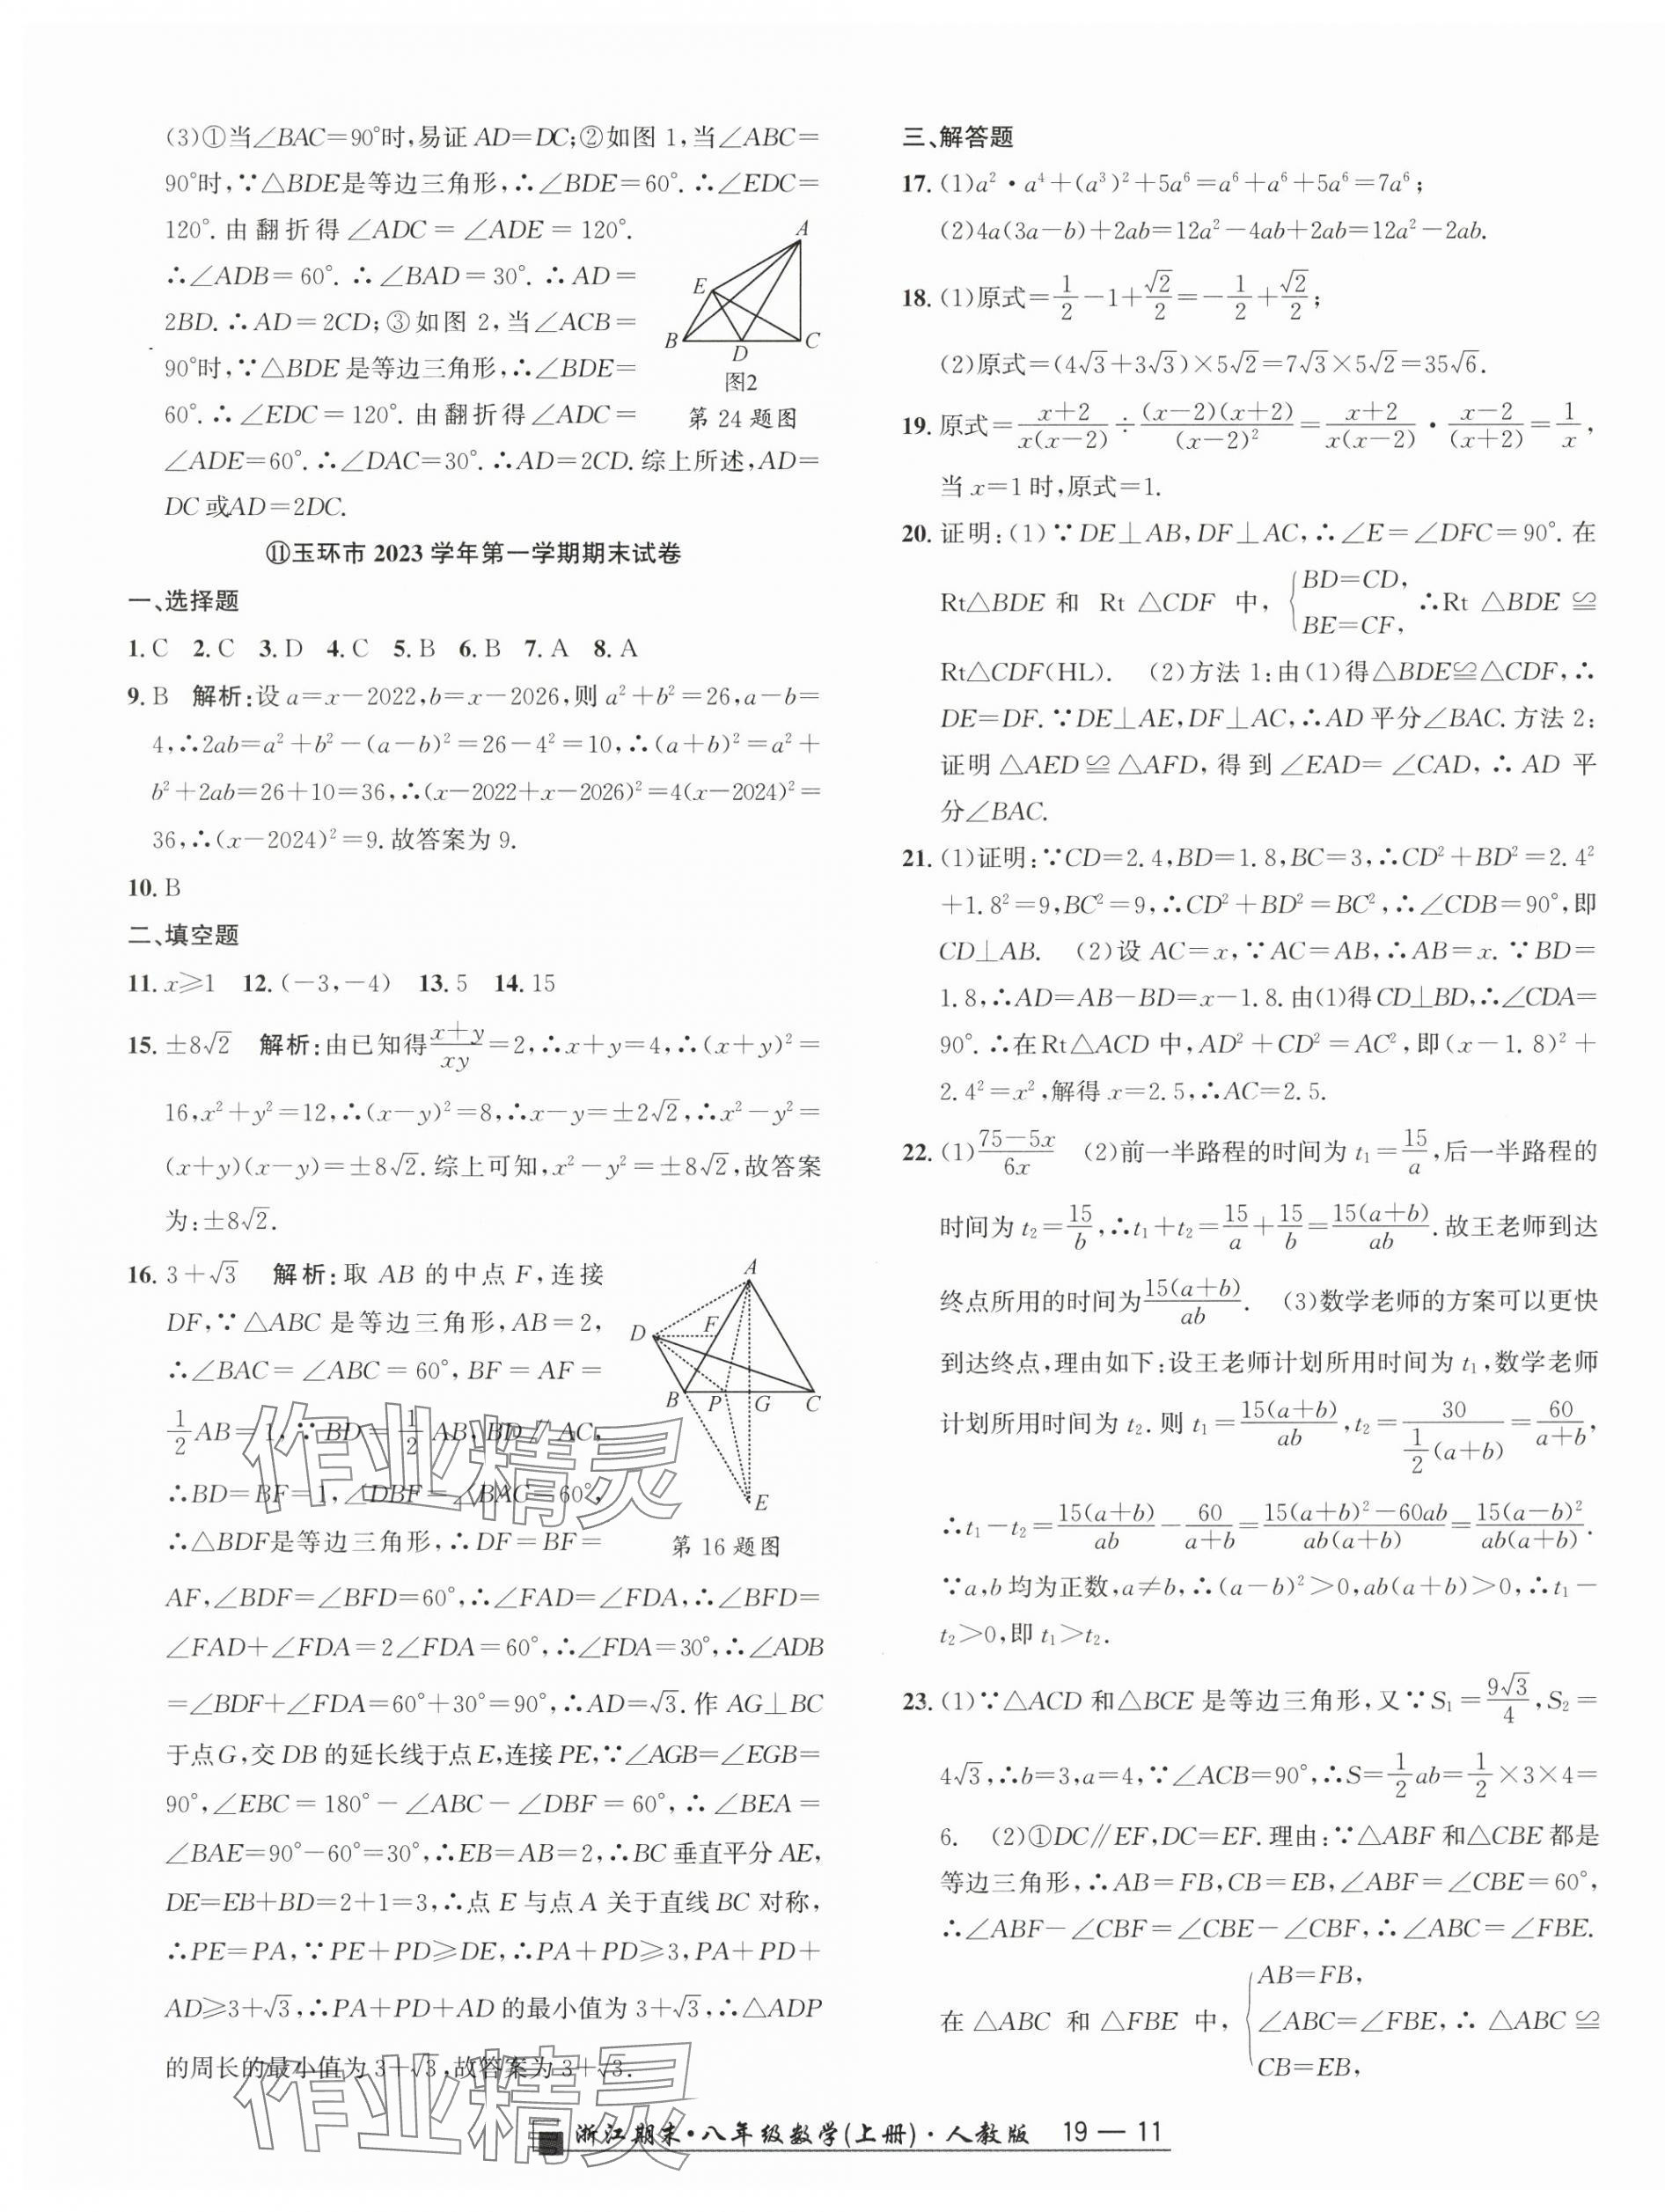 (3)①当∠BAC=90°时,易证AD=DC;②如图1,当∠ABC=
90°时,∵△BDE是等边三角形,∴∠BDE=60°.∴∠EDC=
120°.由翻折得∠ADC=∠ADE=120°.
∴∠ADB=60°.∴∠BAD=30°.∴AD=
2BD.∴AD=2CD;③如图2,当∠ACB=
90°时,∵△BDE是等边三角形,∴∠BDE=
60°.∴∠EDC=120°.由翻折得∠ADC=
∠ADE=60°.∴∠DAC=30°.∴AD=2CD.综上所述,AD=
DC或AD=2DC.
A
E
B
D
C
图2
第24题图
⑪玉环市2023学年第一学期期末试卷
一、选择题
1.C 2.C 3.D 4.C 5.B 6.B 7.A 8.A
9.B 解析:设a=x-2022,b=x-2026,则a²+b²=26,a-b=
4,∴2ab=a²+b²-(a-b)²=26-4²=10,∴(a+b)²=a²+
b²+2ab=26+10=36,∴(x-2022+x-2026)²=4(x-2024)²=
36,∴(x-2024)²=9.故答案为9.
10.B
二、填空题
11.x≥1 12.(-3,-4) 13.5 14.15
15.±8√2 解析:由已知得(x+y)/(xy)=2,∴x+y=4,∴(x+y)²=
16,x²+y²=12,∴(x-y)²=8,∴x-y=±2√2,∴x²-y²=
(x+y)(x-y)=±8√2.综上可知,x²-y²=±8√2,故答案
为:±8√2.
16.3+√3 解析:取AB的中点F,连接
DF,∵△ABC是等边三角形,AB=2,
∴∠BAC=∠ABC=60°,BF=AF=
1/2AB=1,∵BD=1/2AB,BD∥AC,
∴BD=BF=1,∠DBF=∠BAC=60°,
∴△BDF是等边三角形,∴DF=BF=
A
D
F
B
P
G
C
E
第16题图
AF,∠BDF=∠BFD=60°,∴∠FAD=∠FDA,∴∠BFD=
∠FAD+∠FDA=2∠FDA=60°,∴∠FDA=30°,∴∠ADB
=∠BDF+∠FDA=60°+30°=90°,∴AD=√3.作AG⊥BC
于点G,交DB的延长线于点E,连接PE,∵∠AGB=∠EGB=
90°,∠EBC=180°-∠ABC-∠DBF=60°,∴∠BEA=
∠BAE=90°-60°=30°,∴EB=AB=2,∴BC垂直平分AE,
DE=EB+BD=2+1=3,∴点E与点A关于直线BC对称,
∴PE=PA,∵PE+PD≥DE,∴PA+PD≥3,PA+PD+
AD≥3+√3,∴PA+PD+AD的最小值为3+√3,∴△ADP
的周长的最小值为3+√3,故答案为3+√3.
三、解答题
17.(1)a²·a⁴+(a³)²+5a⁶=a⁶+a⁶+5a⁶=7a⁶;
(2)4a(3a-b)+2ab=12a²-4ab+2ab=12a²-2ab.
18.(1)原式=1/2-1+√2/2=-1/2+√2/2;
(2)原式=(4√3+3√3)×5√2=7√3×5√2=35√6.
19.原式=(x+2)/(x(x-2))÷((x-2)(x+2))/((x-2)²)=(x+2)/(x(x-2))·(x-2)/((x+2))=1/x,
当x=1时,原式=1.
20.证明:(1)∵DE⊥AB,DF⊥AC,∴∠E=∠DFC=90°.在
Rt△BDE和Rt△CDF中,{BD=CD,BE=CF,∴Rt△BDE≌
Rt△CDF(HL). (2)方法1:由(1)得△BDE≌△CDF,∴
DE=DF.∵DE⊥AE,DF⊥AC,∴AD平分∠BAC.方法2:
证明△AED≌△AFD,得到∠EAD=∠CAD,∴AD平
分∠BAC.
21.(1)证明:∵CD=2.4,BD=1.8,BC=3,∴CD²+BD²=2.4²
+1.8²=9,BC²=9,∴CD²+BD²=BC²,∴∠CDB=90°,即
CD⊥AB. (2)设AC=x,∵AC=AB,∴AB=x.∵BD=
1.8,∴AD=AB-BD=x-1.8.由(1)得CD⊥BD,∴∠CDA=
90°.∴在Rt△ACD中,AD²+CD²=AC²,即(x-1.8)²+
2.4²=x²,解得x=2.5,∴AC=2.5.
22.(1)(75-5x)/(6x) (2)前一半路程的时间为t₁=15/a,后一半路程的
时间为t₂=15/b,∴t₁+t₂=15/a+15/b=15(a+b)/(ab).故王老师到达
终点所用的时间为15(a+b)/(ab). (3)数学老师的方案可以更快
到达终点,理由如下:设王老师计划所用时间为t₁,数学老师
计划所用时间为t₂.则t₁=15(a+b)/(ab),t₂=30/(1/2(a+b))=60/(a+b),
∴t₁-t₂=15(a+b)/(ab)-60/(a+b)=(15(a+b)²-60ab)/(ab(a+b))=15(a-b)²/(ab(a+b)).
∵a,b均为正数,a≠b,∴(a-b)²>0,ab(a+b)>0,∴t₁-
t₂>0,即t₁>t₂.
23.(1)∵△ACD和△BCE是等边三角形,又∵S₁=9√3/4,S₂=
4√3,∴b=3,a=4,∵∠ACB=90°,∴S=1/2ab=1/2×3×4=
6. (2)①DC∥EF,DC=EF.理由:∵△ABF和△CBE都是
等边三角形,∴AB=FB,CB=EB,∠ABF=∠CBE=60°,
∴∠ABF-∠CBF=∠CBE-∠CBF,∴∠ABC=∠FBE.
在△ABC和△FBE中,{AB=FB,∠ABC=∠FBE,CB=EB,∴△ABC≌
作业精灵
作业精灵
浙江期末·八年级数学(上册)·人教版 19—11